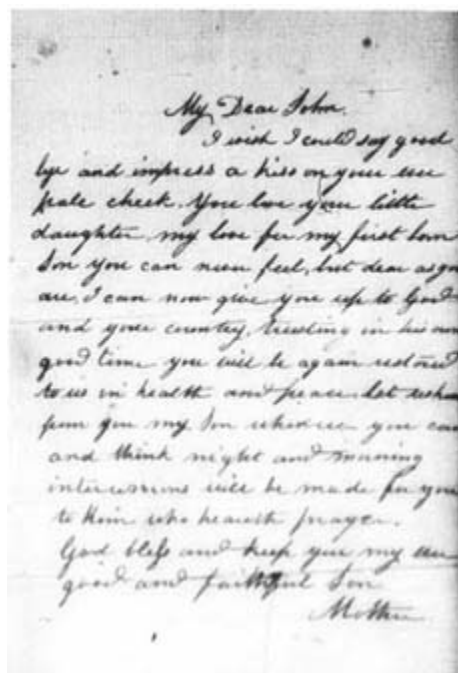 My Dear John.
I wish I could say good
bye and impress a kiss on your
pale cheek. You love your little
daughter, my love for my first born
Son you can never feel, but dear as you
are, I can now give you up to God
and your country, trusting in his own
good time you will be again restored
to us in health and peace. let us hear
from you my Son whenever you can
and think night and morning
intercessions will be made for you
to Him who heareth prayer.
God bless and keep you my
good and faithful Son
Mother